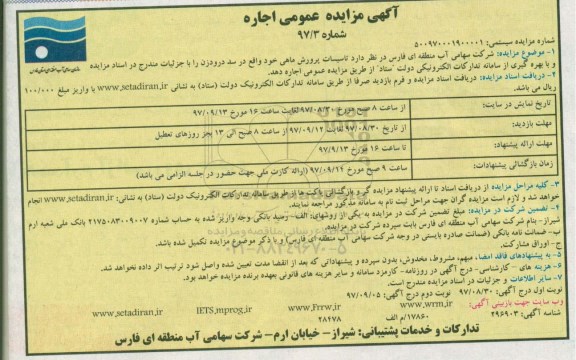 آگهی مزایده عمومی اجاره
شماره ۹۷/۳
شماره مزایده سیستمی: ۵۰۰۹۷۰۰۰۱۹۰۰۰۰۱
۱- موضوع مزایده: شرکت سهامی آب منطقه ای فارس در نظر دارد تاسیسات پرورش ماهی خود واقع در سد درودزن را با جزئیات مندرج در اسناد مزایده
و با بهره گیری از سامانه تدارکات الکترونیکی دولت "ستاد" از طریق مزایده عمومی اجاره دهد.
۲- دریافت اسناد مزایده: دریافت اسناد مزایده و فرم بازدید صرفا از طریق سامانه تدارکات الکترونیک دولت (ستاد) به نشانی www.setadiran.ir با واریز مبلغ ۱۰۰/۰۰۰
ریال می باشد.
تاریخ نمایش در سایت: از ساعت ۸ صبح مورخ ۹۷/۰۸/۳۰ لغایت ساعت ۱۶ مورخ ۹۷/۰۹/۱۳
مهلت بازدید: از تاریخ ۹۷/۰۸/۳۰ لغایت ۹۷/۰۹/۱۲ از ساعت ۸ صبح الی ۱۳ بجز روزهای تعطیل
مهلت ارائه پیشنهاد: تا ساعت ۱۶ مورخ ۹۷/۹/۱۳
زمان بازگشائی پیشنهادات: ساعت ۹ صبح مورخ ۹۷/۰۹/۱۴ (ارائه کارت ملی جهت حضور در جلسه الزامی می باشد)
۳- کلیه مراحل مزایده از دریافت اسناد تا ارائه پیشنهاد مزایده گی و بازگشائی پاکت ها از طریق سامانه تدارکات الکترونیک دولت (ستاد) به نشانی: www.setadiran.ir انجام
خواهد شد و لازم است مزایده گران جهت مراحل ثبت نام به سامانه مذکور مراجعه نمایند.
۴- تضمین شرکت در مزایده: مبلغ تضمین شرکت در مزایده به یکی از روشهای: الف- رسید بانکی وجه واریز شده به حساب شماره ۲۱۷۵۰۸۳۰۰۹۰۰۷ بانک ملی شعبه ارم
شیراز- بنام شرکت سهامی آب منطقه ای فارس بابت سپرده شرکت در مزایده.
ب- ضمانت نامه بانکی (ضمانت صادره بایستی در وجه شرکت سهامی آب منطقه ای فارس و با ذکر موضوع مزایده تکمیل شده باشد.
ج- اوراق مشارکت.
۵- به پیشنهادهای فاقد امضاء، مبهم، مشروط، مخدوش، بدون سپرده و پیشنهاداتی که بعد از انقضا مدت تعیین شده واصل شود ترتیب اثر داده نخواهد شد.
۶- هزینه های - کارشناسی- درج آگهی در روزنامه- کارمزد سامانه و سایر هزینه های قانونی بعهده برنده مزایده خواهد بود.
۷- سایر اطلاعات و جزئیات در اسناد مزایده مندرج است.
نوبت اول درج آگهی: ۹۷/۰۸/۳۰ نوبت دوم درج آگهی: ۹۷/۰۹/۰۵
وب سایت جهت بازبینی آگهی: www.wrm.ir www.Frrw.ir IETS.mporg.ir www.setadiran.ir
شناسه آگهی: ۲۹۶۹۰۳ ۱۷۸۶۰/م الف ۲۸۲۷۸
تدارکات و خدمات پشتیبانی: شیراز- خیابان ارم- شرکت سهامی آب منطقه ای فارس